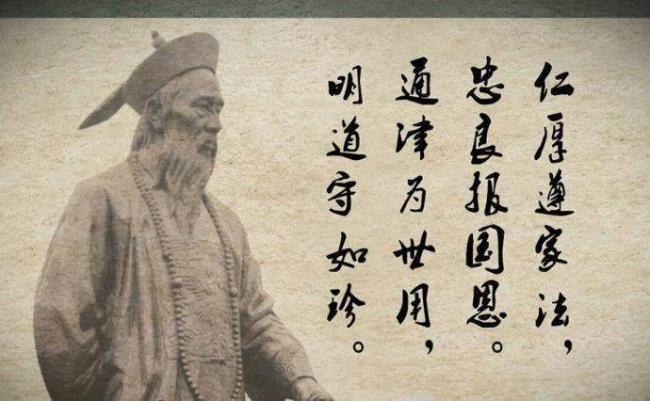 仁厚遵家法，
忠良报国恩。
通津为世用，
明道守如珍。